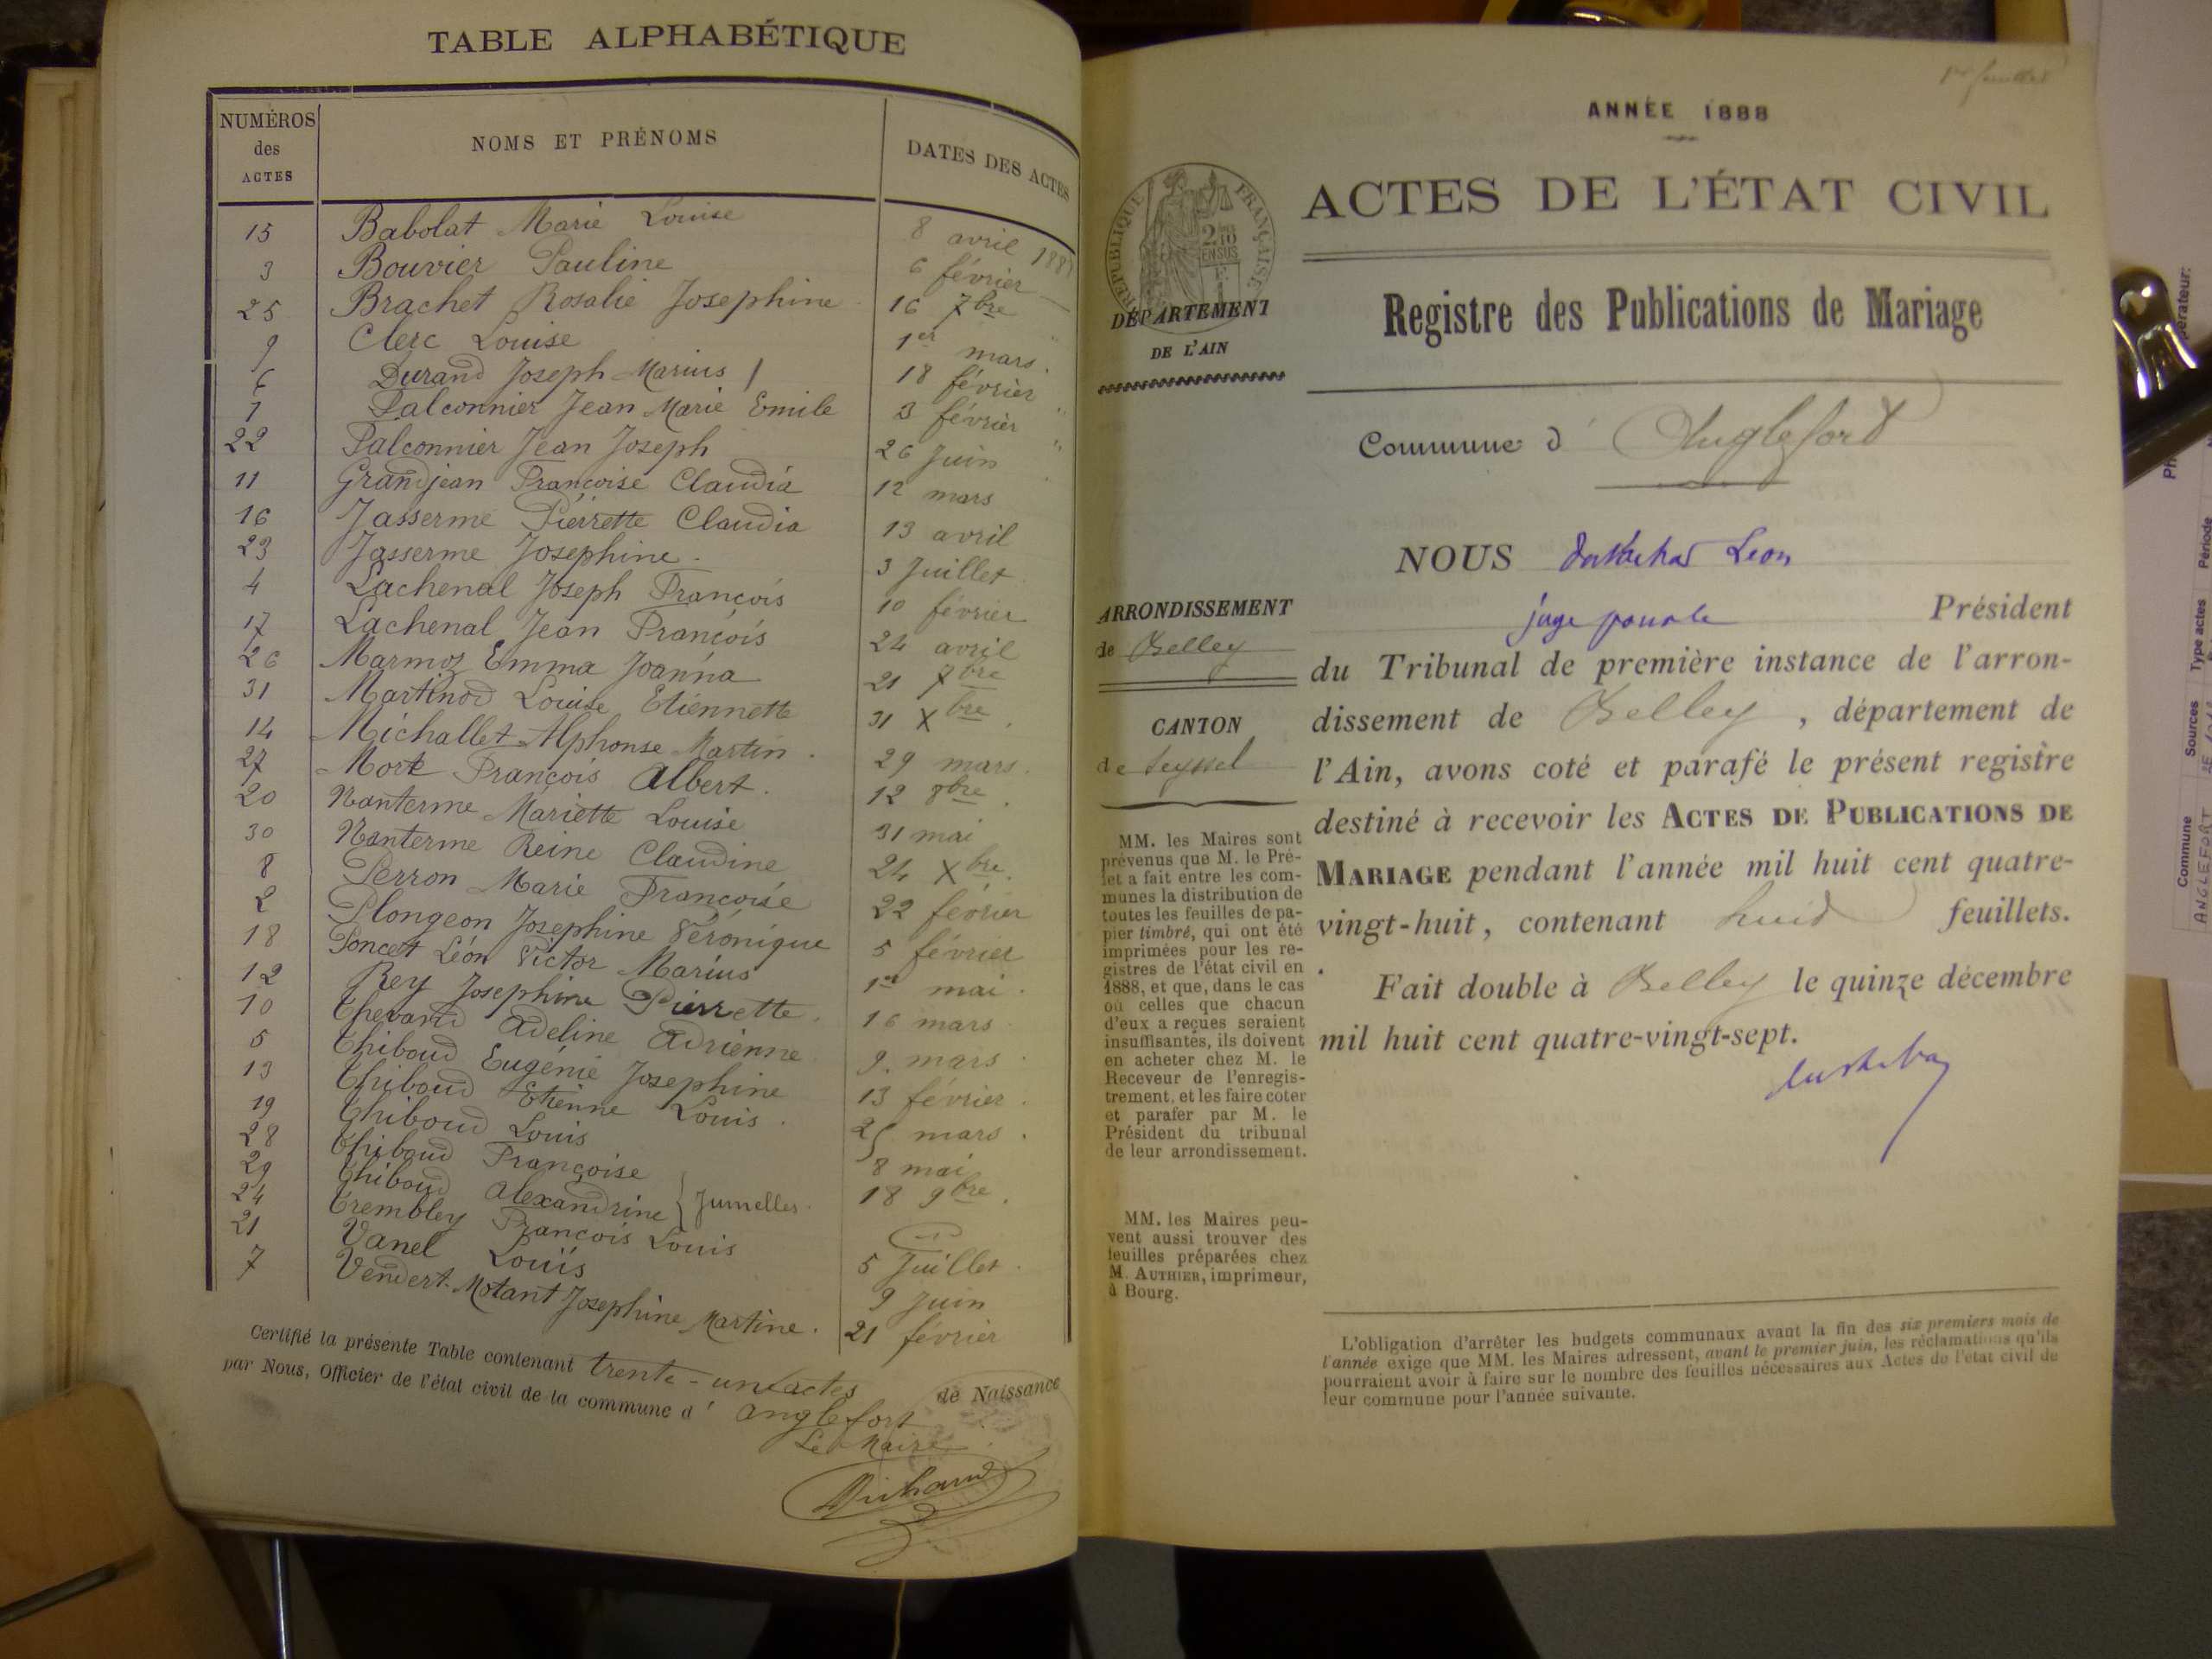 TABLE ALPHABÉTIQUE
NUMÉROS des ACTES
NOMS ET PRÉNOMS
DATES DES ACTES
15 Babolat Marie Louise 8 avril 1888
3 Bouvier Pauline 6 février
25 Brachet Rosalie Josephine 16 7bre "
9 Clerc Louise 1er mars.
6 Durand Joseph Marius / 18 février "
1 Falconnier Jean Marie Emile 3 février "
22 Falconnier Jean Joseph 26 Juin
11 Grandjean Francoise Claudia 12 mars
16 Jasserme Pierrette Claudia 13 avril
23 Jasserme Josephine. 3 Juillet
4 Lachenal Joseph François 10 février
17 Lachenal Jean François 24 avril
26 Marmoz Emma Joanna 21 7bre
31 Martinod Louise Etiennette 31 Xbre.
14 Michallet Alphonse Martin. 29 mars.
27 Mork François Albert. 12 8bre.
20 Nanterme Mariette Louise 31 mai
30 Nanterme Reine Claudine 24 Xbre.
8 Perron Marie Françoise 22 février
2 Plongeon Josephine Véronique 5 février
18 Poncet Léon Victor Marius 1er mai.
12 Rey Josephine Pierrette. 16 mars
10 Adeline Adrienne 9. mars.
5 Thiboud Eugénie Josephine 13 février.
13 Thiboud Etienne Louis. 25 mars.
19 Thiboud Louis 8 mai
28 Thiboud Françoise 18 9bre.
29 Thiboud Alexandrine } Jumelles.
24 Trembley François Louis 5 Juillet.
21 Vanel Louis 9 Juin
7 Vendert-Motant Josephine Martine. 21 février
Certifié la présente Table contenant trente-un actes de Naissance
par Nous, Officier de l'état civil de la commune d' anglefort
Le Maire
1er feuillet
ANNÉE 1888
ACTES DE L'ÉTAT CIVIL
REPUBLIQUE FRANÇAISE
Registre des Publications de Mariage
DÉPARTEMENT
DE L'AIN
Commune d' Anglefort
NOUS Leon
juge pour le Président
ARRONDISSEMENT
de Belley
CANTON
de Seyssel
du Tribunal de première instance de l'arron-
dissement de Belley, département de
l'Ain, avons coté et parafé le présent registre
destiné à recevoir les ACTES DE PUBLICATIONS DE
MARIAGE pendant l'année mil huit cent quatre-
vingt-huit, contenant huit feuillets.
Fait double à Belley le quinze décembre
mil huit cent quatre-vingt-sept.
MM. les Maires sont
prévenus que M. le Pré-
fet a fait entre les com-
munes la distribution de
toutes les feuilles de pa-
pier timbré, qui ont été
imprimées pour les re-
gistres de l'état civil en
1888, et que, dans le cas
où celles que chacun
d'eux a reçues seraient
insuffisantes, ils doivent
en acheter chez M. le
Receveur de l'enregis-
trement, et les faire coter
et parafer par M. le
Président du tribunal
de leur arrondissement.
MM. les Maires peu-
vent aussi trouver des
feuilles préparées chez
M. AUTHIER, imprimeur,
à Bourg.
L'obligation d'arrêter les budgets communaux avant la fin des six premiers mois de
l'année exige que MM. les Maires adressent, avant le premier juin, les réclamations qu'ils
pourraient avoir à faire sur le nombre des feuilles nécessaires aux Actes de l'état civil de
leur commune pour l'année suivante.
Commune
ANGLEFORT
Sources
Type actes
Période